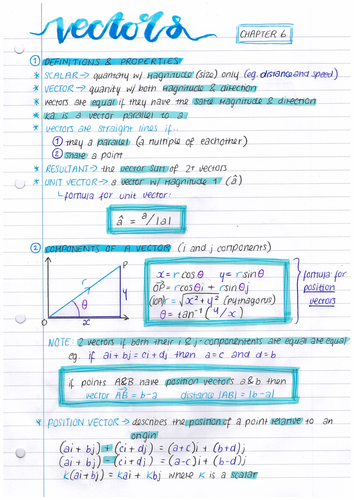 vectors
CHAPTER 6
① DEFINITIONS & PROPERTIES
* SCALAR → quantity w/ magnitude (size) only (eg. distance and speed)
* VECTOR → quanity w/ both magnitude & direction
* vectors are equal if they have the same magnitude & direction
* ka is a vector parallel to a
* vectors are straight lines if...
① they a parallel (a multiple of eachother)
② share a point
* RESULTANT → the vector sum of 2+ vectors
* UNIT VECTOR → a vector w/ magnitude 1 (â)
↳ formula for unit vector:
â = a/|a|
② COMPONENTS OF A VECTOR (i and j components)
P
r
y
θ
O
x
x = r cosθ y = r sinθ
OP = r cosθi + r sinθj
r = √x²+y² (pythagoras)
θ = tan⁻¹(y/x)
formula for
position
vectors
NOTE: 2 vectors if both their i & j components are equal are equal
eg. if ai + bj = ci + dj then a = c and d = b
if points A&B have position vectors a & b then
vector AB = b-a distance |AB| = |b-a|
* POSITION VECTOR → describes the position of a point relative to an
origin
(ai + bj) + (ci + dj) = (a+c)i + (b+d)j
(ai + bj) - (ci + dj) = (a-c)i + (b-d)j
k(ai + bj) = kai + kbj where k is a scalar